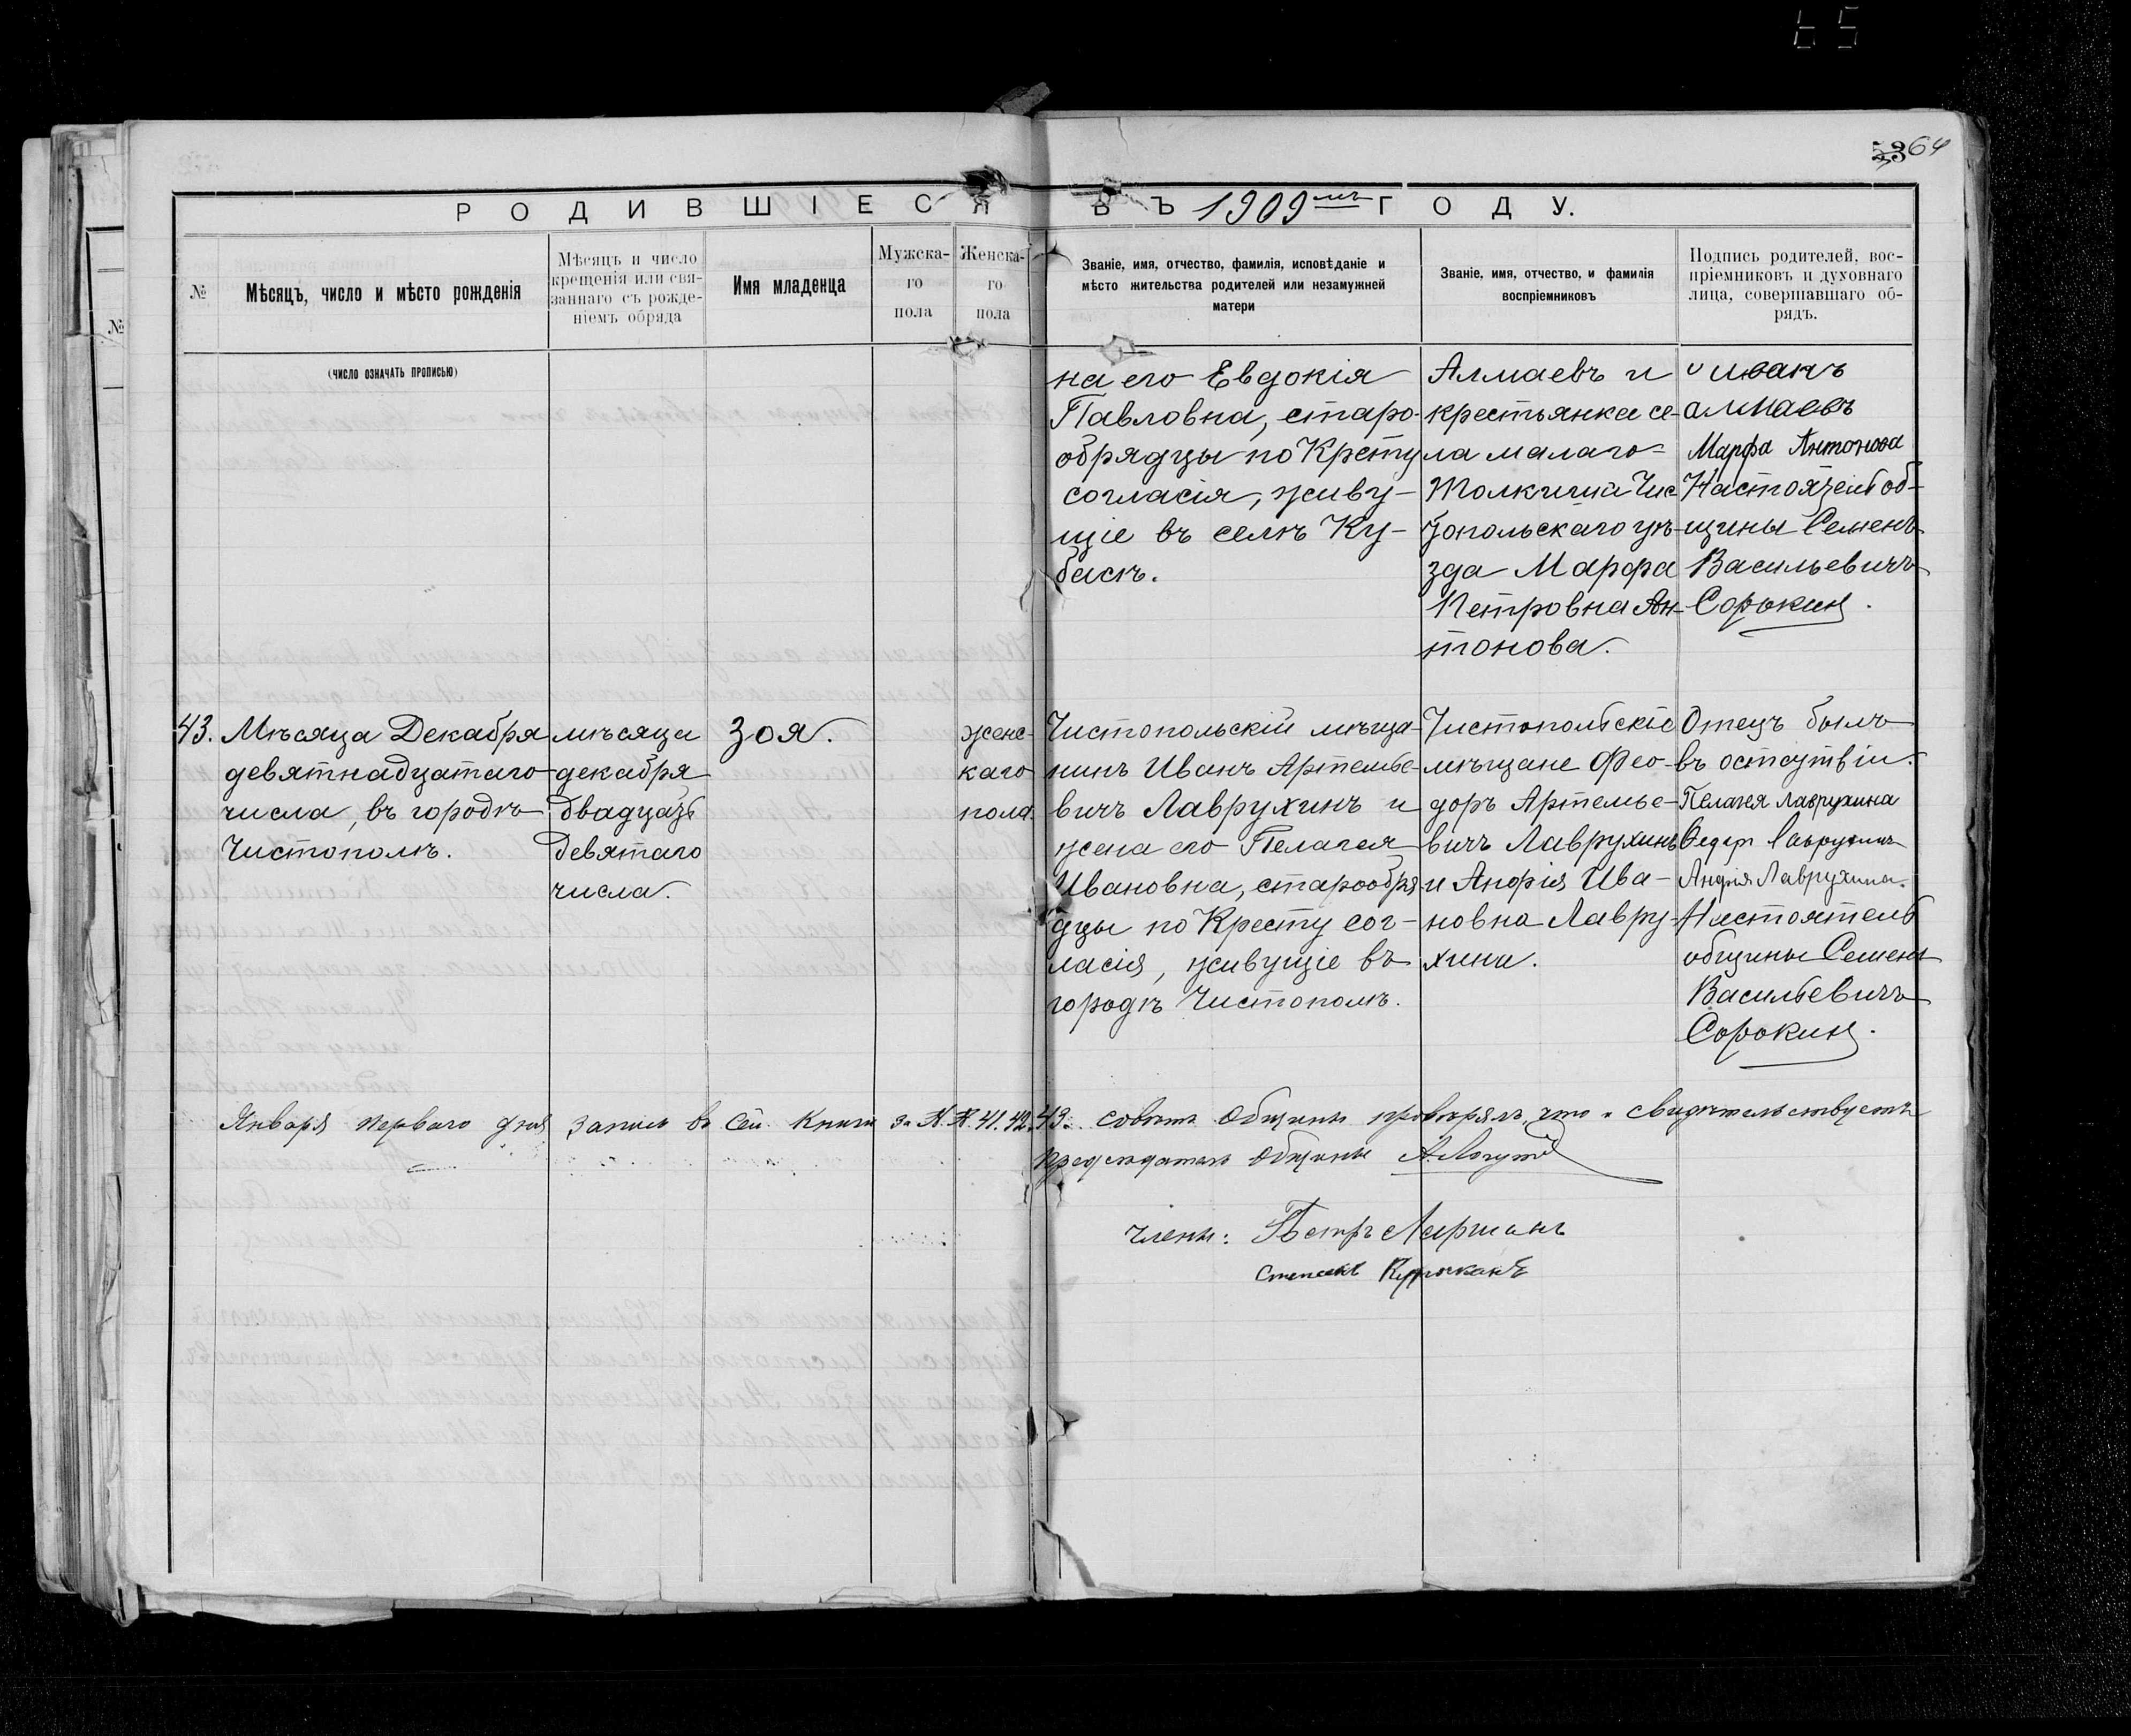 65
53 64
РОДИВШІЕСЯ ВЪ 1909мъ ГОДУ.
№
Мѣсяцъ, число и мѣсто рожденія
Мѣсяцъ и число
крещенія или свя-
заннаго съ рожде-
ніемъ обряда
Имя младенца
Мужска-
го
пола
Женска-
го
пола
Званіе, имя, отчество, фамилія, исповѣданіе и
мѣсто жительства родителей или незамужней
матери
Званіе, имя, отчество, и фамилія
воспріемниковъ
Подпись родителей, вос-
пріемниковъ и духовнаго
лица, совершавшаго об-
рядъ.
(число означать прописью)
на его Евдокія
Павловна, старо-
обрядцы по Кресту
согласія, живу-
щіе въ селѣ Ку-
басѣ.
Алмаевъ и
крестьянка се-
ла малаго
Толкиша Чис-
топольскаго уѣ-
зда Марфа
Петровна Ан-
тонова.
иванъ
алмаевъ
Марфа Антонова
Настоятель об-
щины Семенъ
Васильевичъ
Сорокинъ.
43.
Мѣсяца Декабря
девятнадцатаго
числа, въ городѣ
Чистополѣ.
мѣсяца
декабря
двадцать
девятаго
числа.
Зоя.
женс-
каго
пола.
Чистопольскій мѣща-
нинъ Иванъ Артемье-
вичъ Лаврухинъ и
жена его Пелагея
Ивановна, старообря-
дцы по Кресту сог-
ласія, живущіе въ
городѣ Чистополѣ.
Чистопольскіе
мѣщане Фео-
доръ Артемье-
вичъ Лаврухинъ
и Анфія Ива-
новна Лавру-
хина.
Отецъ былъ
въ остутвіи.
Пелагея Лаврухина
Ѳедор Лаврухинъ
Анфія Лаврухина.
Настоятель
общины Семенъ
Васильевичъ
Сорокинъ.
Января перваго дня запись въ сей книги за №№ 41. 42. 43. совѣтъ Общины провѣрялъ, что и свидѣтельствуетъ
Предсѣдатель Общины
Члены: Петръ
Степанъ